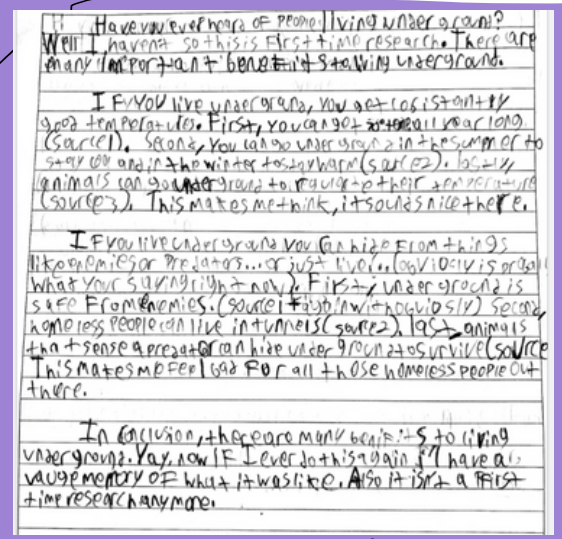 Have you ever heard of people living under ground?
Well I havent so this is First time research. There are
many important benefits to living underground.
IF you live undergrand, you get consistantly
good temperatures. First, you can get all year long
(Source1). Second, you can go under ground in the summer to
stay cool and in the winter to stay warm (source2). lastly,
animals can go underground to their temperature
(source3). This makes me think, it sounds nice there.
IF you live underground you can hide From things
like enemies or predators... or just live..
what your saying right now). First, underground is
safe From enemies. (source1) Second,
homeless people can live in tunnels (source2). last, animals
that sense a predator can hide under ground to survive (source
This makes me feel bad For all those homeless people out
there.
In conclusion, there are many to living
underground. Yay, now IF I ever do this again i'll have a
vauge memory OF what it was like. Also it isnt a First
time research anymore.